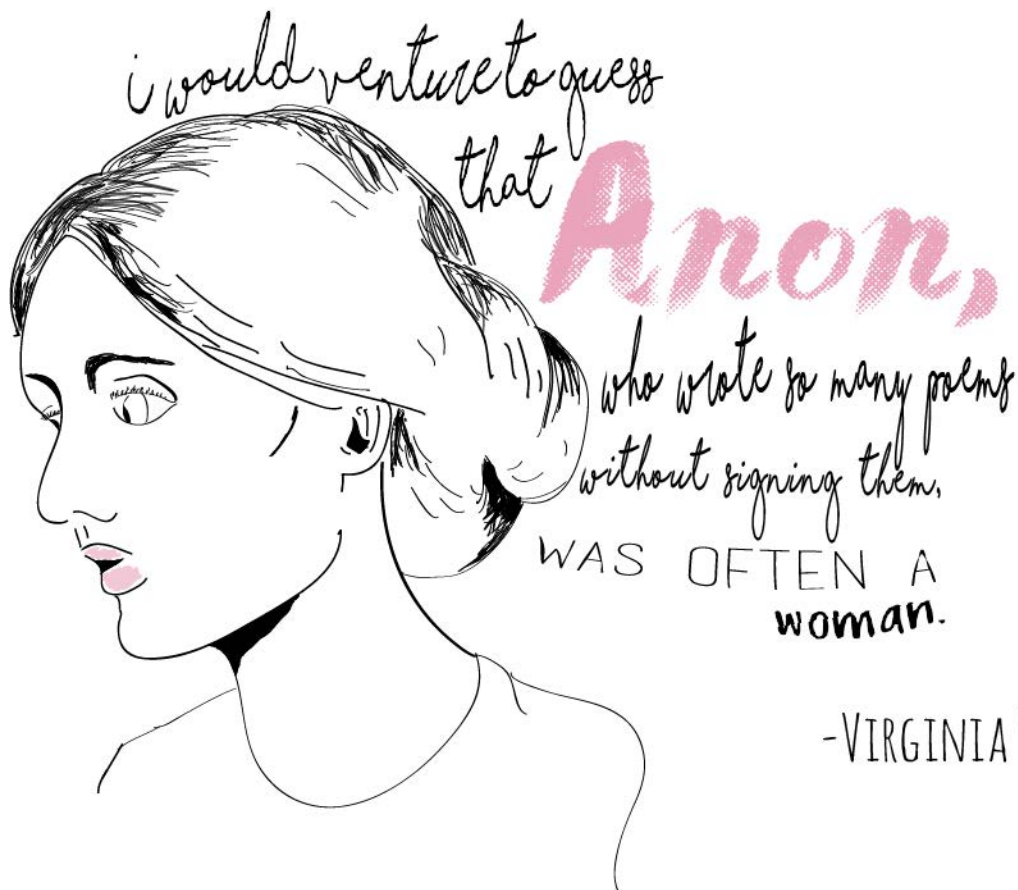 i would venture to guess
that Anon,
who wrote so many poems
without signing them,
WAS OFTEN A
woman.
-VIRGINIA